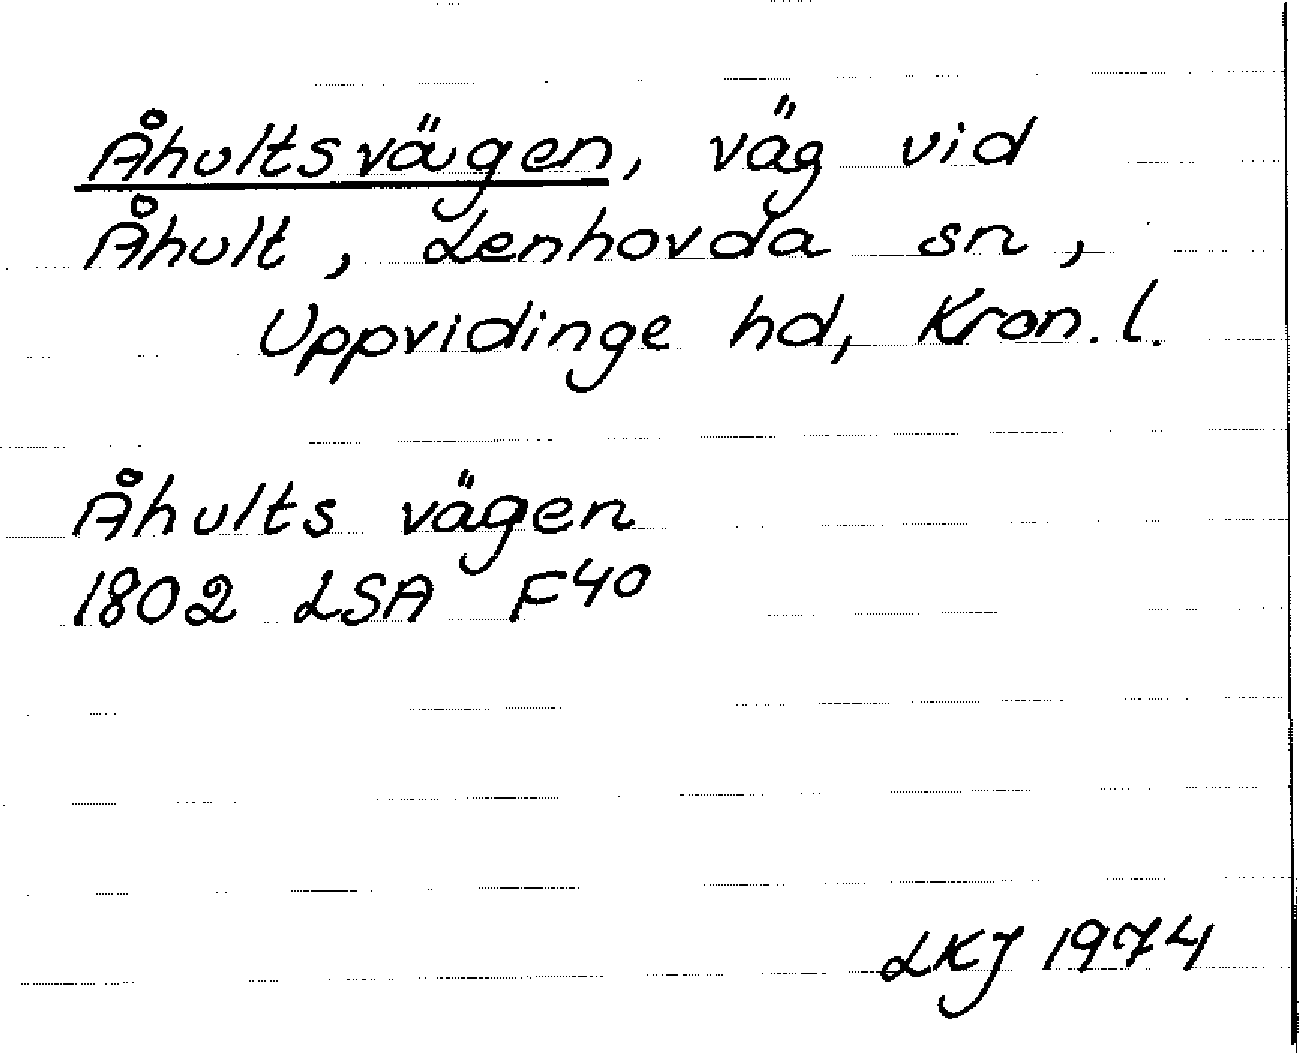 Åhultsvägen, väg vid
Åhult, Lenhovda sn,
Uppvidinge hd, Kron. l.
Åhults vägen
1802 LSA F40
LKJ 1974